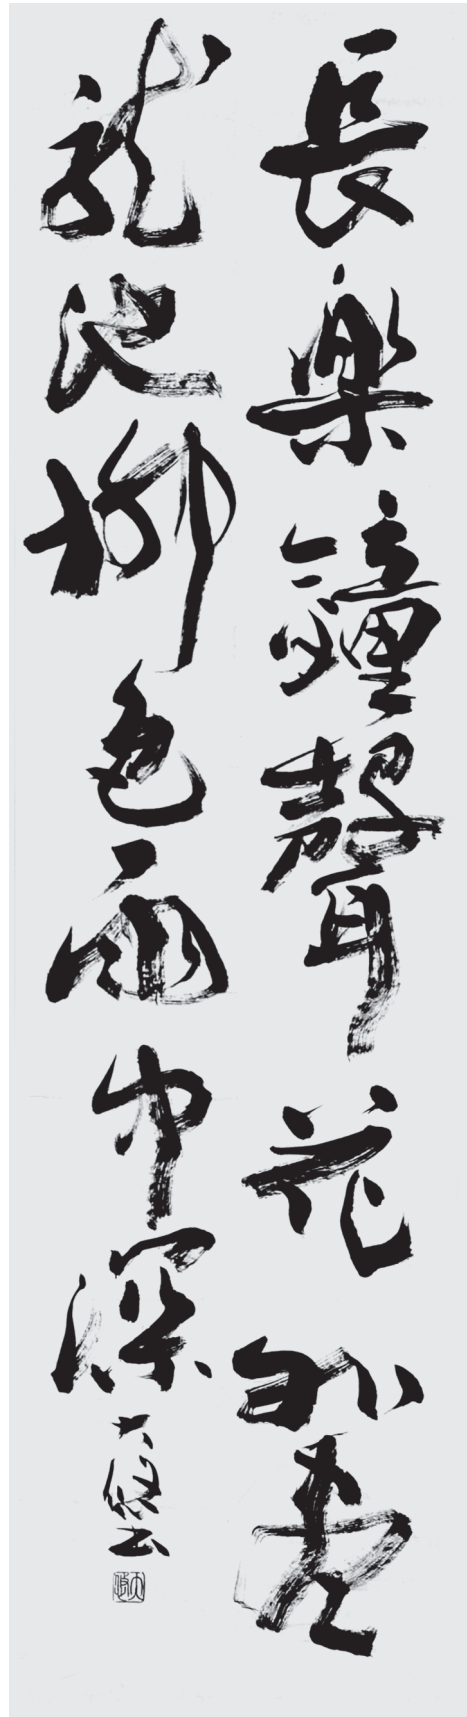 長樂鐘聲花外盡
龍池柳色雨中深
大